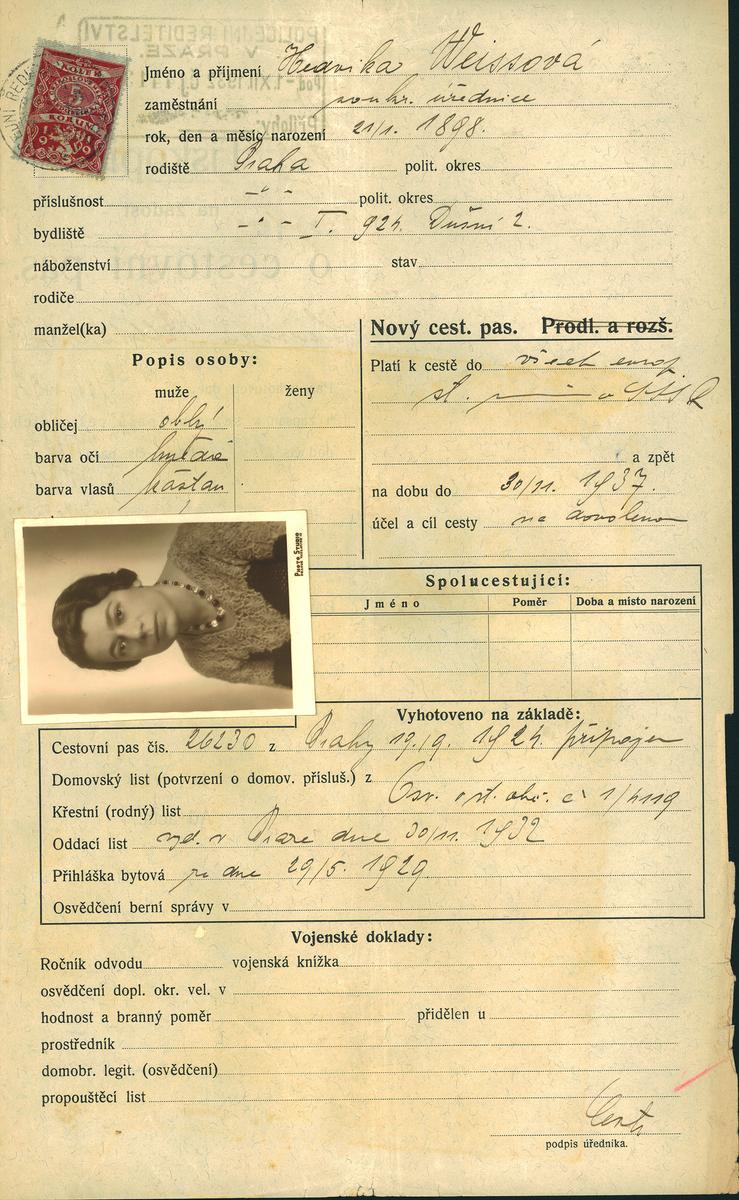 KOLEK
5
KORUN
1919
Jméno a příjmení Hedvika Weissová
zaměstnání soukr. úřednice
rok, den a měsíc narození 21/1. 1898.
rodiště Praha polit. okres
příslušnost -"- polit. okres
bydliště -"- I. 924. Dušní 2.
náboženství stav
rodiče
manžel(ka)
Nový cest. pas. Prodl. a rozš.
Platí k cestě do všech evrop.
st.
a zpět
na dobu do 30/11. 1937.
účel a cíl cesty na dovolenou
Popis osoby:
muže ženy
obličej oblý
barva očí hnědé
barva vlasů kaštan
PHOTO STUDIO
Spolucestující:
Jméno Poměr Doba a místo narození
Vyhotoveno na základě:
Cestovní pas čís. 26230 z Prahy 19./9. 1924. připojen
Domovský list (potvrzení o domov. přísluš.) z
Křestní (rodný) list Osv. o st. obč. č 1/4119
Oddací list vyd. v Praze dne 30/11. 1932
Přihláška bytová ze dne 29/5. 1929.
Osvědčení berní správy v
Vojenské doklady:
Ročník odvodu vojenská knížka
osvědčení dopl. okr. vel. v
hodnost a branný poměr přidělen u
prostředník
domobr. legit. (osvědčení)
propouštěcí list
podpis úředníka.